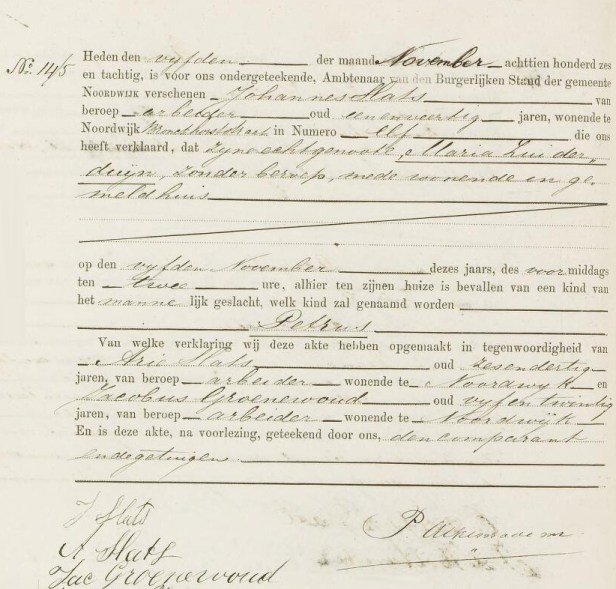 No. 145
Heden den vyfden der maand November achttien honderd zes
en tachtig, is vóór ons ondergeteekende, Ambtenaar van den Burgerlijken Stand der gemeente
NOORDWIJK verschenen Johannes Slats van
beroep arbeider oud eenenveertig jaren, wonende te
Noordwijk Bronckhorststraat in Numero Elf die ons
heeft verklaard, dat zyne echtgenoote, Maria Zuider
duyn, zonder beroep, mede wonende in ge-
meld huis
op den vyfden November dezes jaars, des voor middags
ten twee ure, alhier ten zijnen huize is bevallen van een kind van
het manne lijk geslacht, welk kind zal genaamd worden
Petrus
Van welke verklaring wij deze akte hebben opgemaakt in tegenwoordigheid van
Arie Slats oud zesendertig
jaren, van beroep arbeider wonende te Noordwyk en
Jacobus Groenewoud oud vyfentwintig
jaren, van beroep arbeider wonende te Noordwijk
En is deze akte, na voorlezing, geteekend door ons, den comparant
en de getuigen.
J Slats
A Slats
Jac Groenewoud